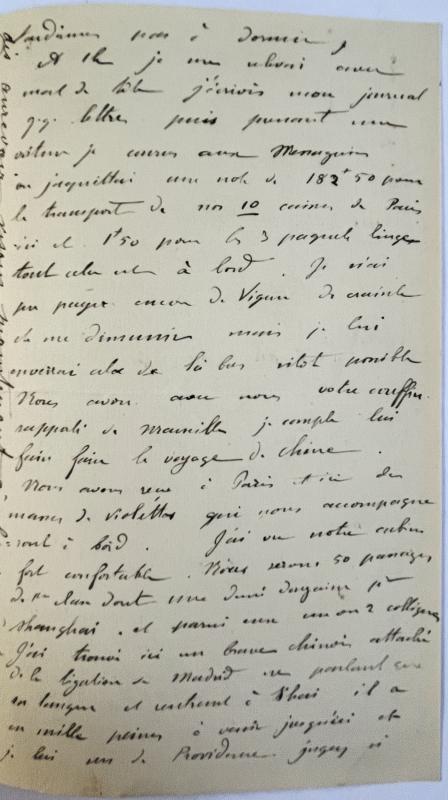 pas à dormir,
A 2h je me relevai avec
mal de tête j'écrivis mon journal
q.q. lettres puis prenant une
voiture je courus aux Messageries
où j'acquittai une note de 182f 50 pour
le transport de nos 10 caisses de Paris
ici et 1f50 pour les 3 paquets linge
tout cela est à bord. Je n'ai
pu payer encore de Vigan de crainte
de me démunir mais je lui
enverrai cela de là bas sitôt possible
Nous avons avec nous votre couffin
rappelé de Marseille je compte lui
faire faire le voyage de Chine.
Nous avons reçu à Paris et ici des
masses de violettes qui nous accompagnent
à bord. J'ai vu notre cabine
fort confortable. Nous serons 50 passagers
de dont une demi douzaine pr
Shanghaï, et parmi eux un ou 2 collègues
J'ai trouvé ici un brave chinois attaché
de la légation de Madrid ne parlant que
sa langue et rentrant à S'haï il a
eu mille peines à venir jusqu'ici et
je lui sers de Providence jugez si